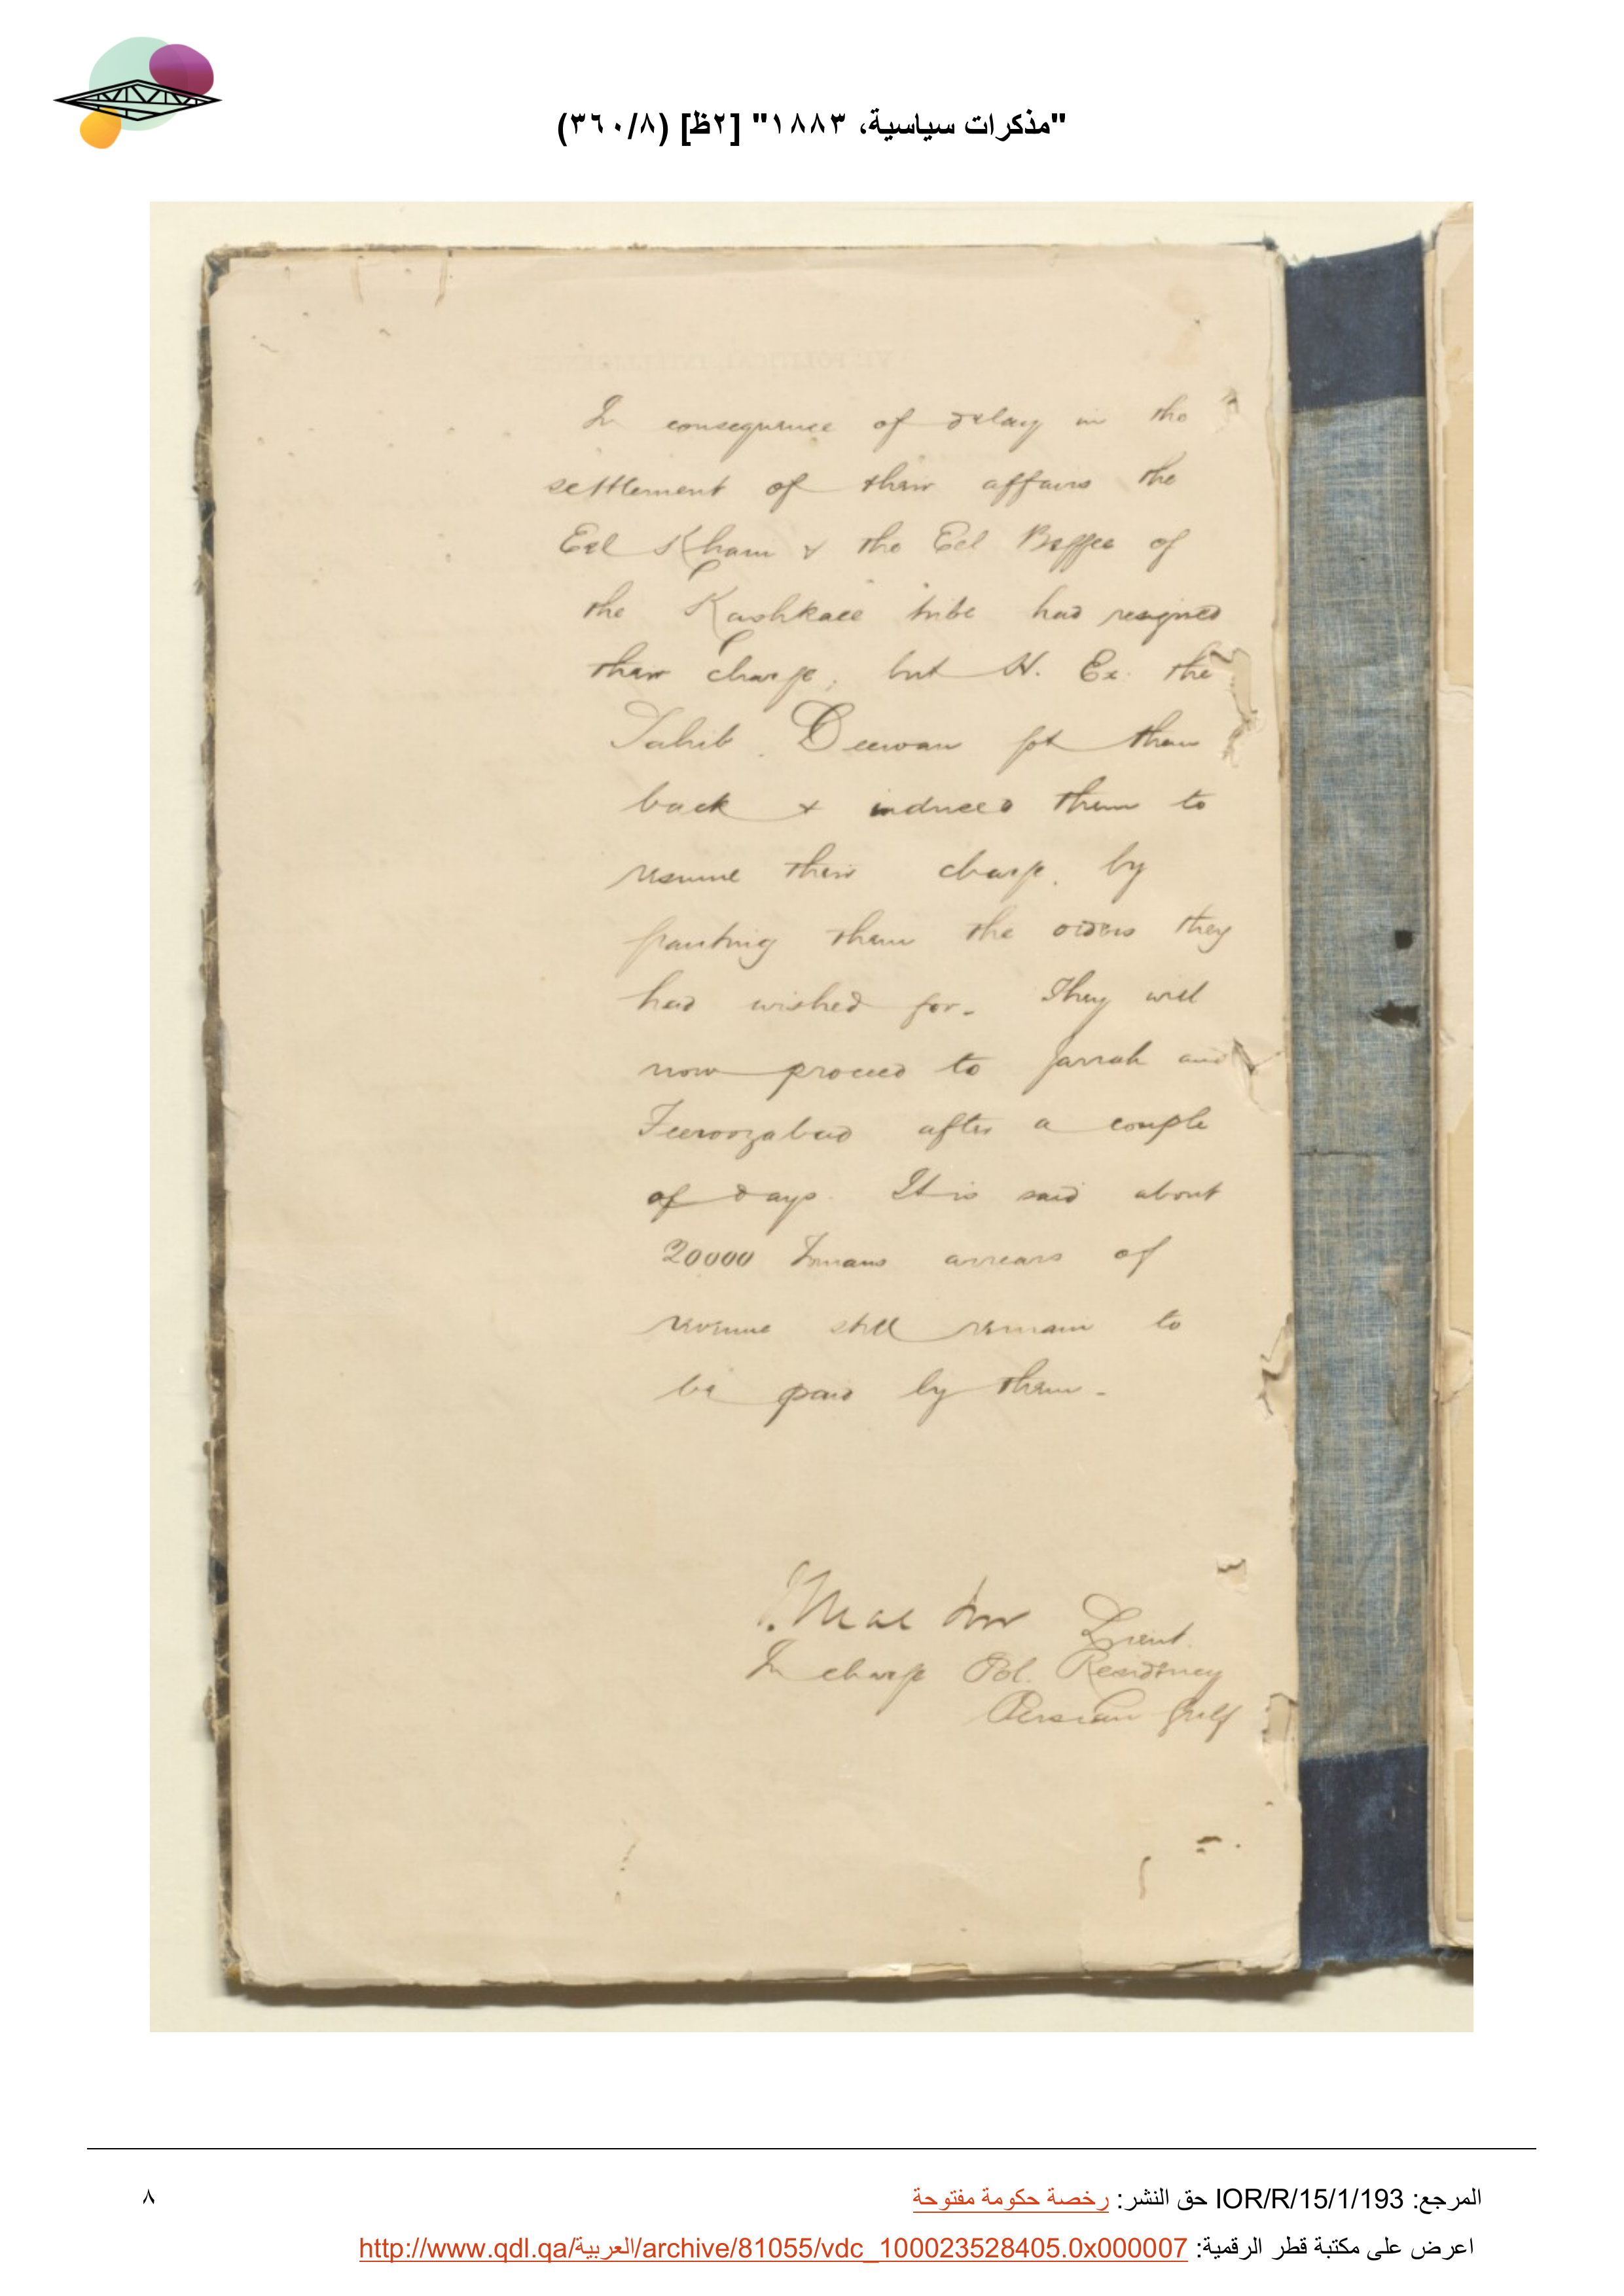 "مذكرات سياسية، ١٨٨٣" [٢ظ] (٣٦٠/٨)
In consequence of delay in the
settlement of their affairs the
Eel Khani & the Eel Beggee of
the Kashkaee tribe had resigned
their charge, but H. Ex. the
Sahib Deewan got them
back & induced them to
resume their charge, by
granting them the orders they
had wished for. They will
now proceed to Jarrah and
Feeroozabad after a couple
of days. It is said about
20000 Tomans arrears of
revenue still remain to
be paid by them.
Lieut.
In charge Pol. Residency
Persian Gulf
المرجع: IOR/R/15/1/193 حق النشر: رخصة حكومة مفتوحة
٨
اعرض على مكتبة قطر الرقمية: http://www.qdl.qa/العربية/archive/81055/vdc_100023528405.0x000007